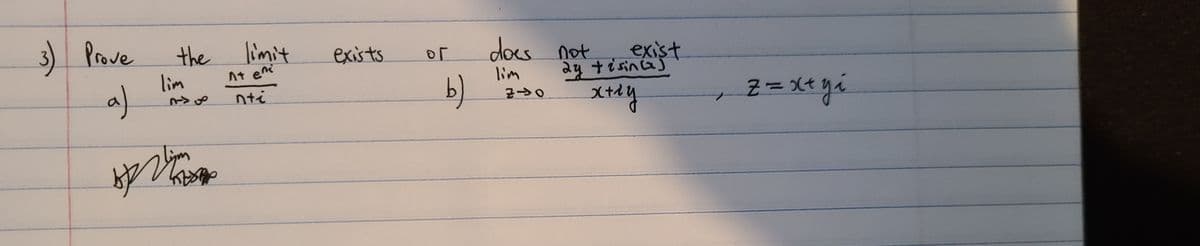 3) Prove the limit exists or does not exist
a) lim n→∞ n+e^{ni} / n+i b) lim z→0 2y+i sin(x) / x+iy , z=x+yi
lim